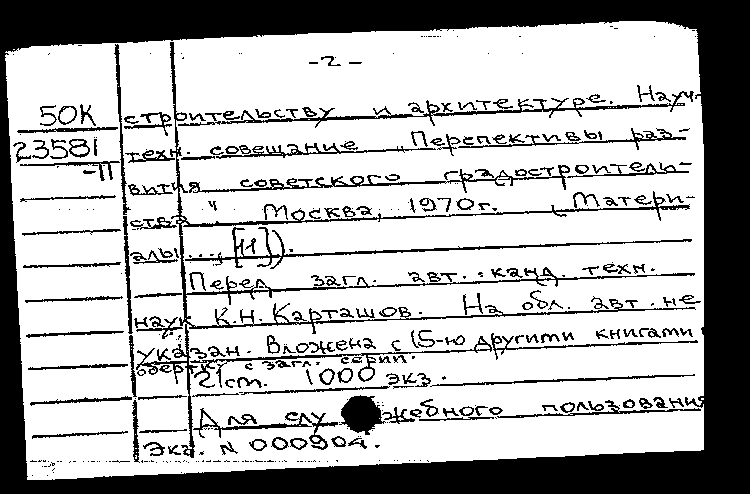 -2-
50К строительству и архитектуре. Науч-
23581 техн. совещание „Перспективы раз-
-11 вития советского градостроитель-
ства" Москва, 1970г. (Матери-
алы..., [11]).
Перед загл. авт.: канд. техн.
наук К.Н. Карташов. На обл. авт. не
указан. Вложена с 15-ю другими книгами в
обертку с загл. серии.
21 ст. 1000 экз.
Для служебного пользования
Экз. N 000904.